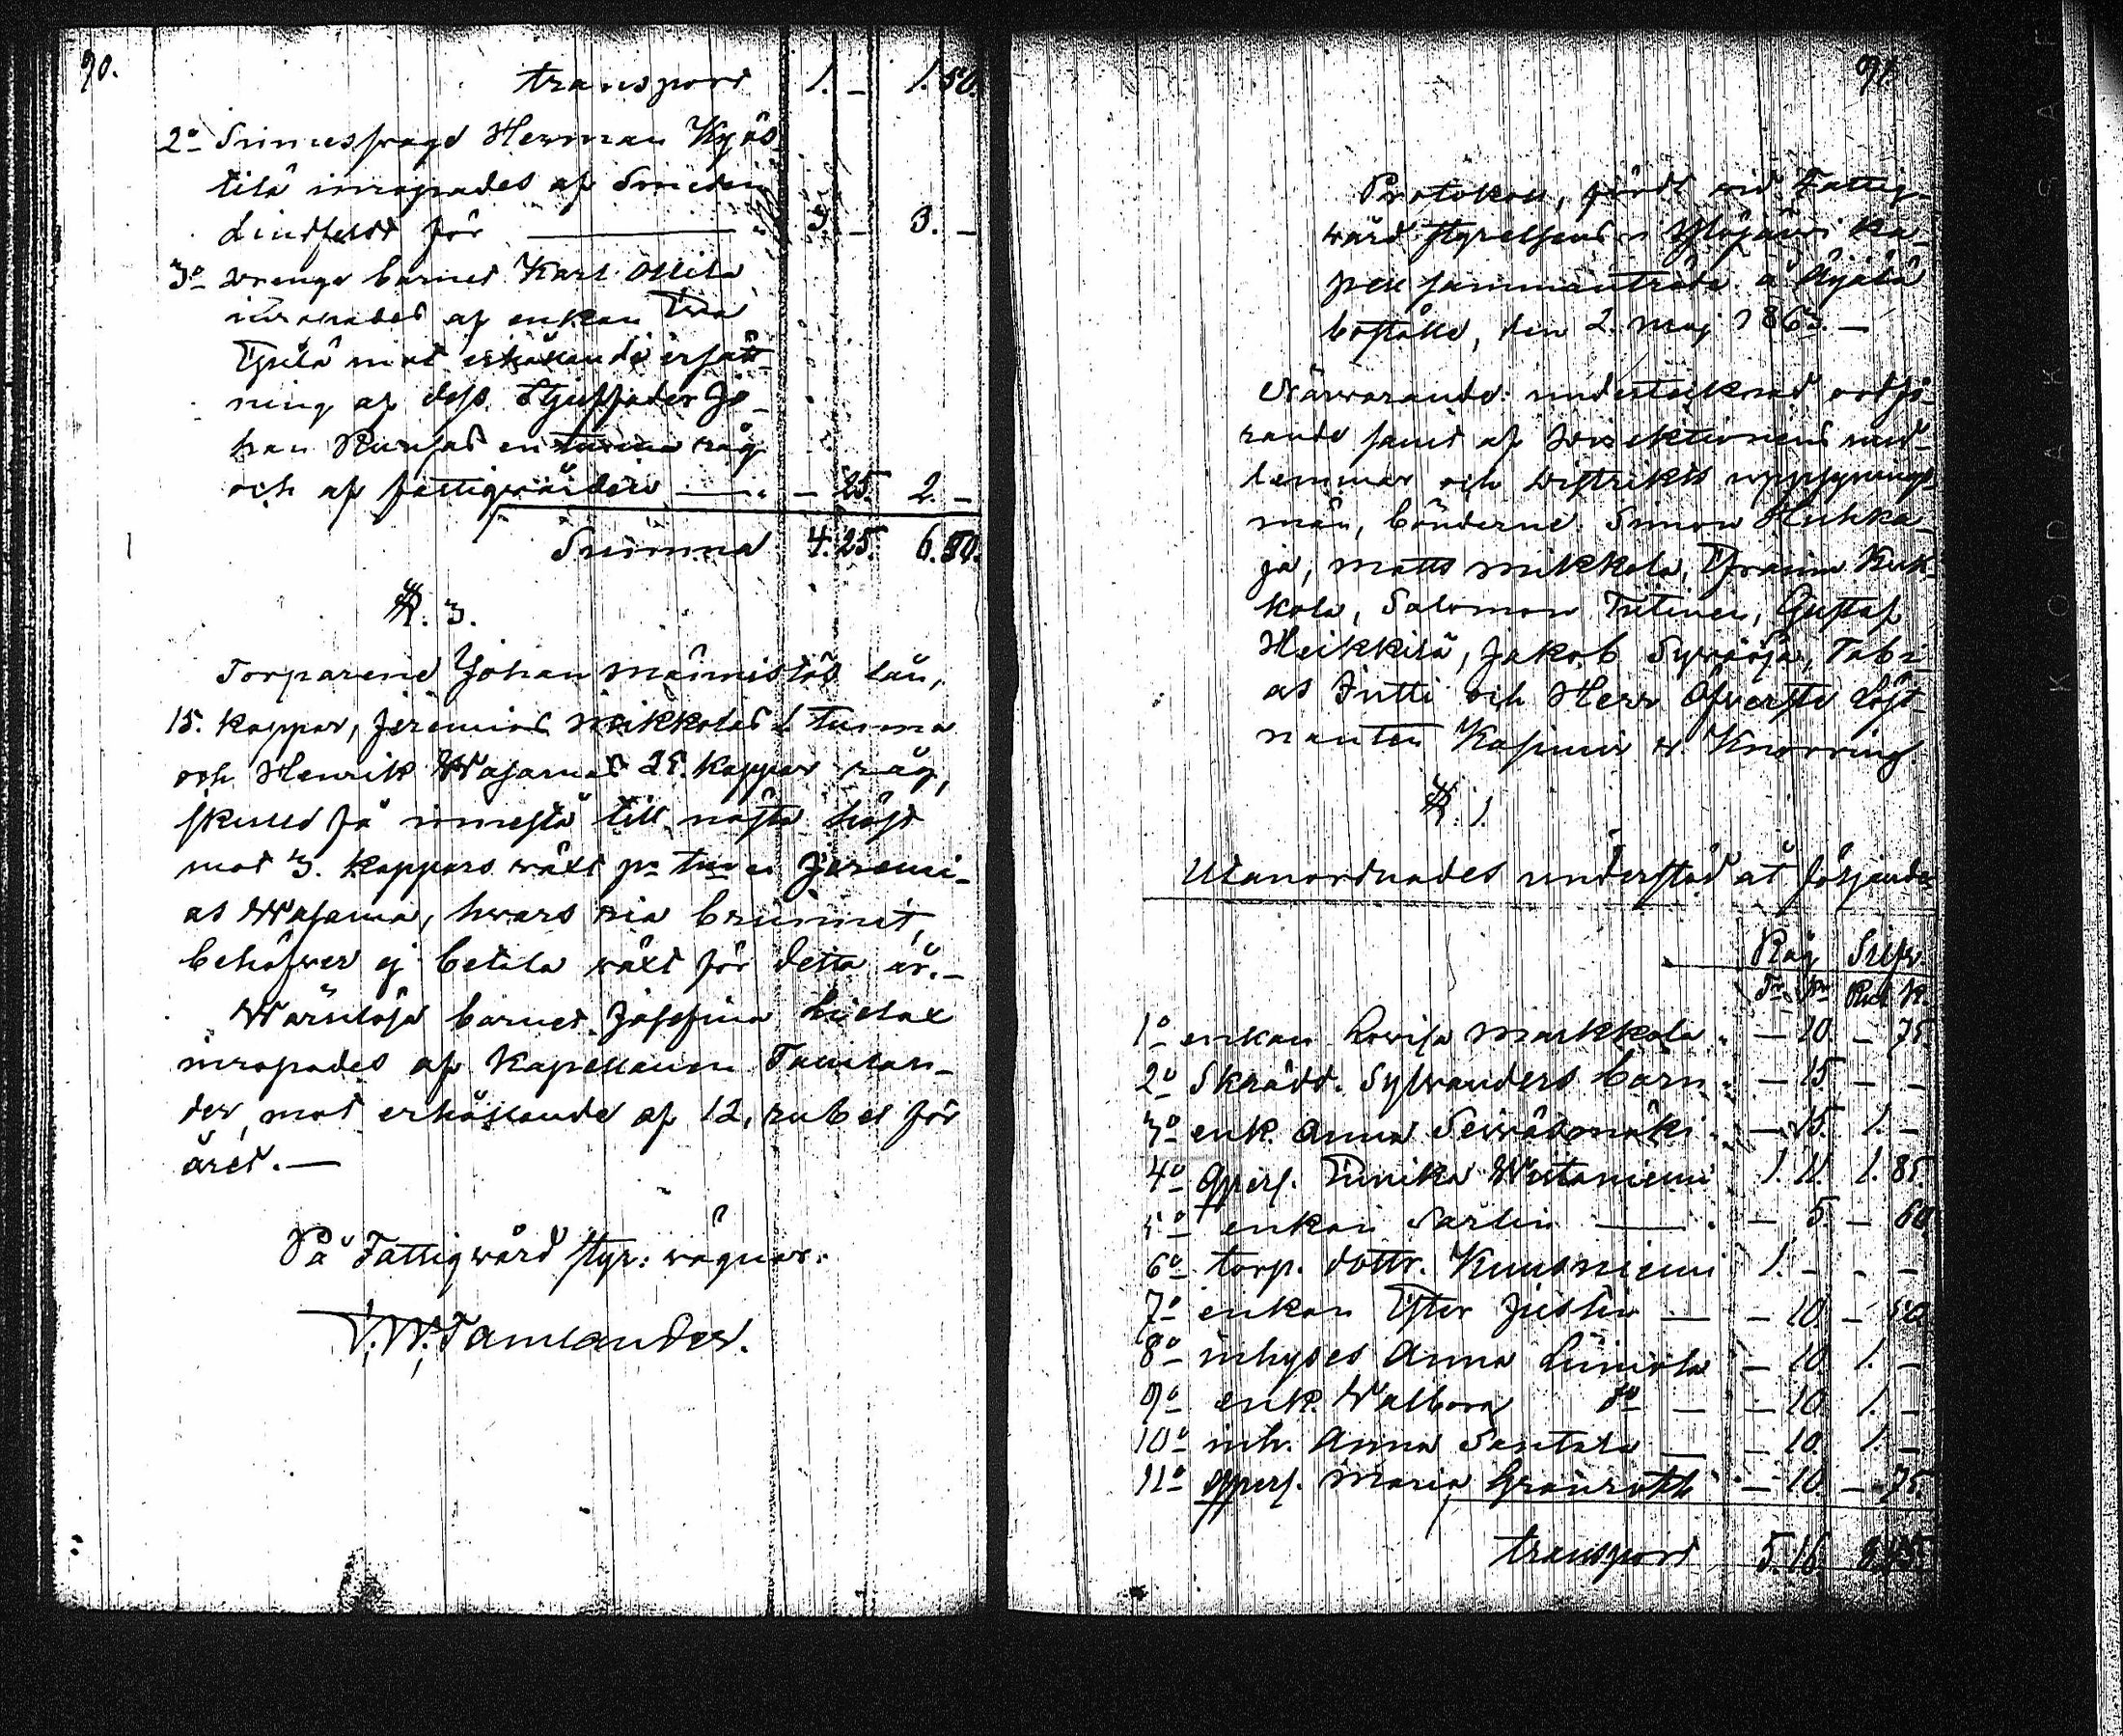 90.
transport 1. — 1.50.
2o Sinnessvage Herman Kyös
tilä inropades af Smeden
Lindfeldt för — 3. — 3. —
3o Wrenge barnet Karl Ollila
inropades af enkan Ewa
mot erhållande ersätt-
ning af dess Styffader Jo-
han en tunna råg
och af fattigvården — — 25. 2. —
Summa 4.25. 6.50.
§. 3.
Torparene Johan Männistös lån,
15. kappar, Jeremias Mikkolas 1 tunna
och Henrik Wasamas 25. kappar råg,
skulle få innestå till nästa höst
mot 3. kappars växt pr tunna. Jeremi-
as Wasama, hvars ria brunnit,
behöfver ej betala växt för detta år. —
Wärnlösa barnet Josefina Lielax
inropades af Kapellanen Tamlan-
der, mot erhållande af 12. rubel för
året. —
På Fattigvård styr: vägnar:
F. W. Tamlander.
91.
Protokoll, fördt vid Fattig-
vård styrelsens i Ylöjärvi Ka-
pell sammanträde å Äijälä
boställe, den 2. Maj 1863. —
Närvarande: undertecknad ordfö-
rande samt af Direktionens med-
lemmar och Distrikts uppsynings-
män, bönderne Simon Huhka-
ja, Matts Mikkola, Kuk-
kola, Salomon Gustaf
Heikkilä, Jakob Tobi-
as Jutti och Herr Öfverste Löjt-
nanten Kasimir v. Knorring.
§. 1.
Utanordnades understöd åt följande
Råg Silfv.
Tr. kr Rub. K.
1o enkan Lovisa Markkola — 10 — 75.
2o Skrädd. Sylvanders barn — 15 — —
3o enk. Anna — 15. 1. —
4o Qpers. Wiitaniemi 1. 11. 1. 85.
5o enkan Sarlin — — 5. — 60
6o torp. dottr. Kuusniemi 1. — — —
7o enkan Ester Justin — — 10 — 50
8o inhyses Anna Liimola — 10 1. —
9o enk. Walborg do — — 10. 1. —
10o inh. Anna Santala — — 10. 1. —
11o Qpers. Maria Grönroth — 10. — 75.
transport 5.16 8.45